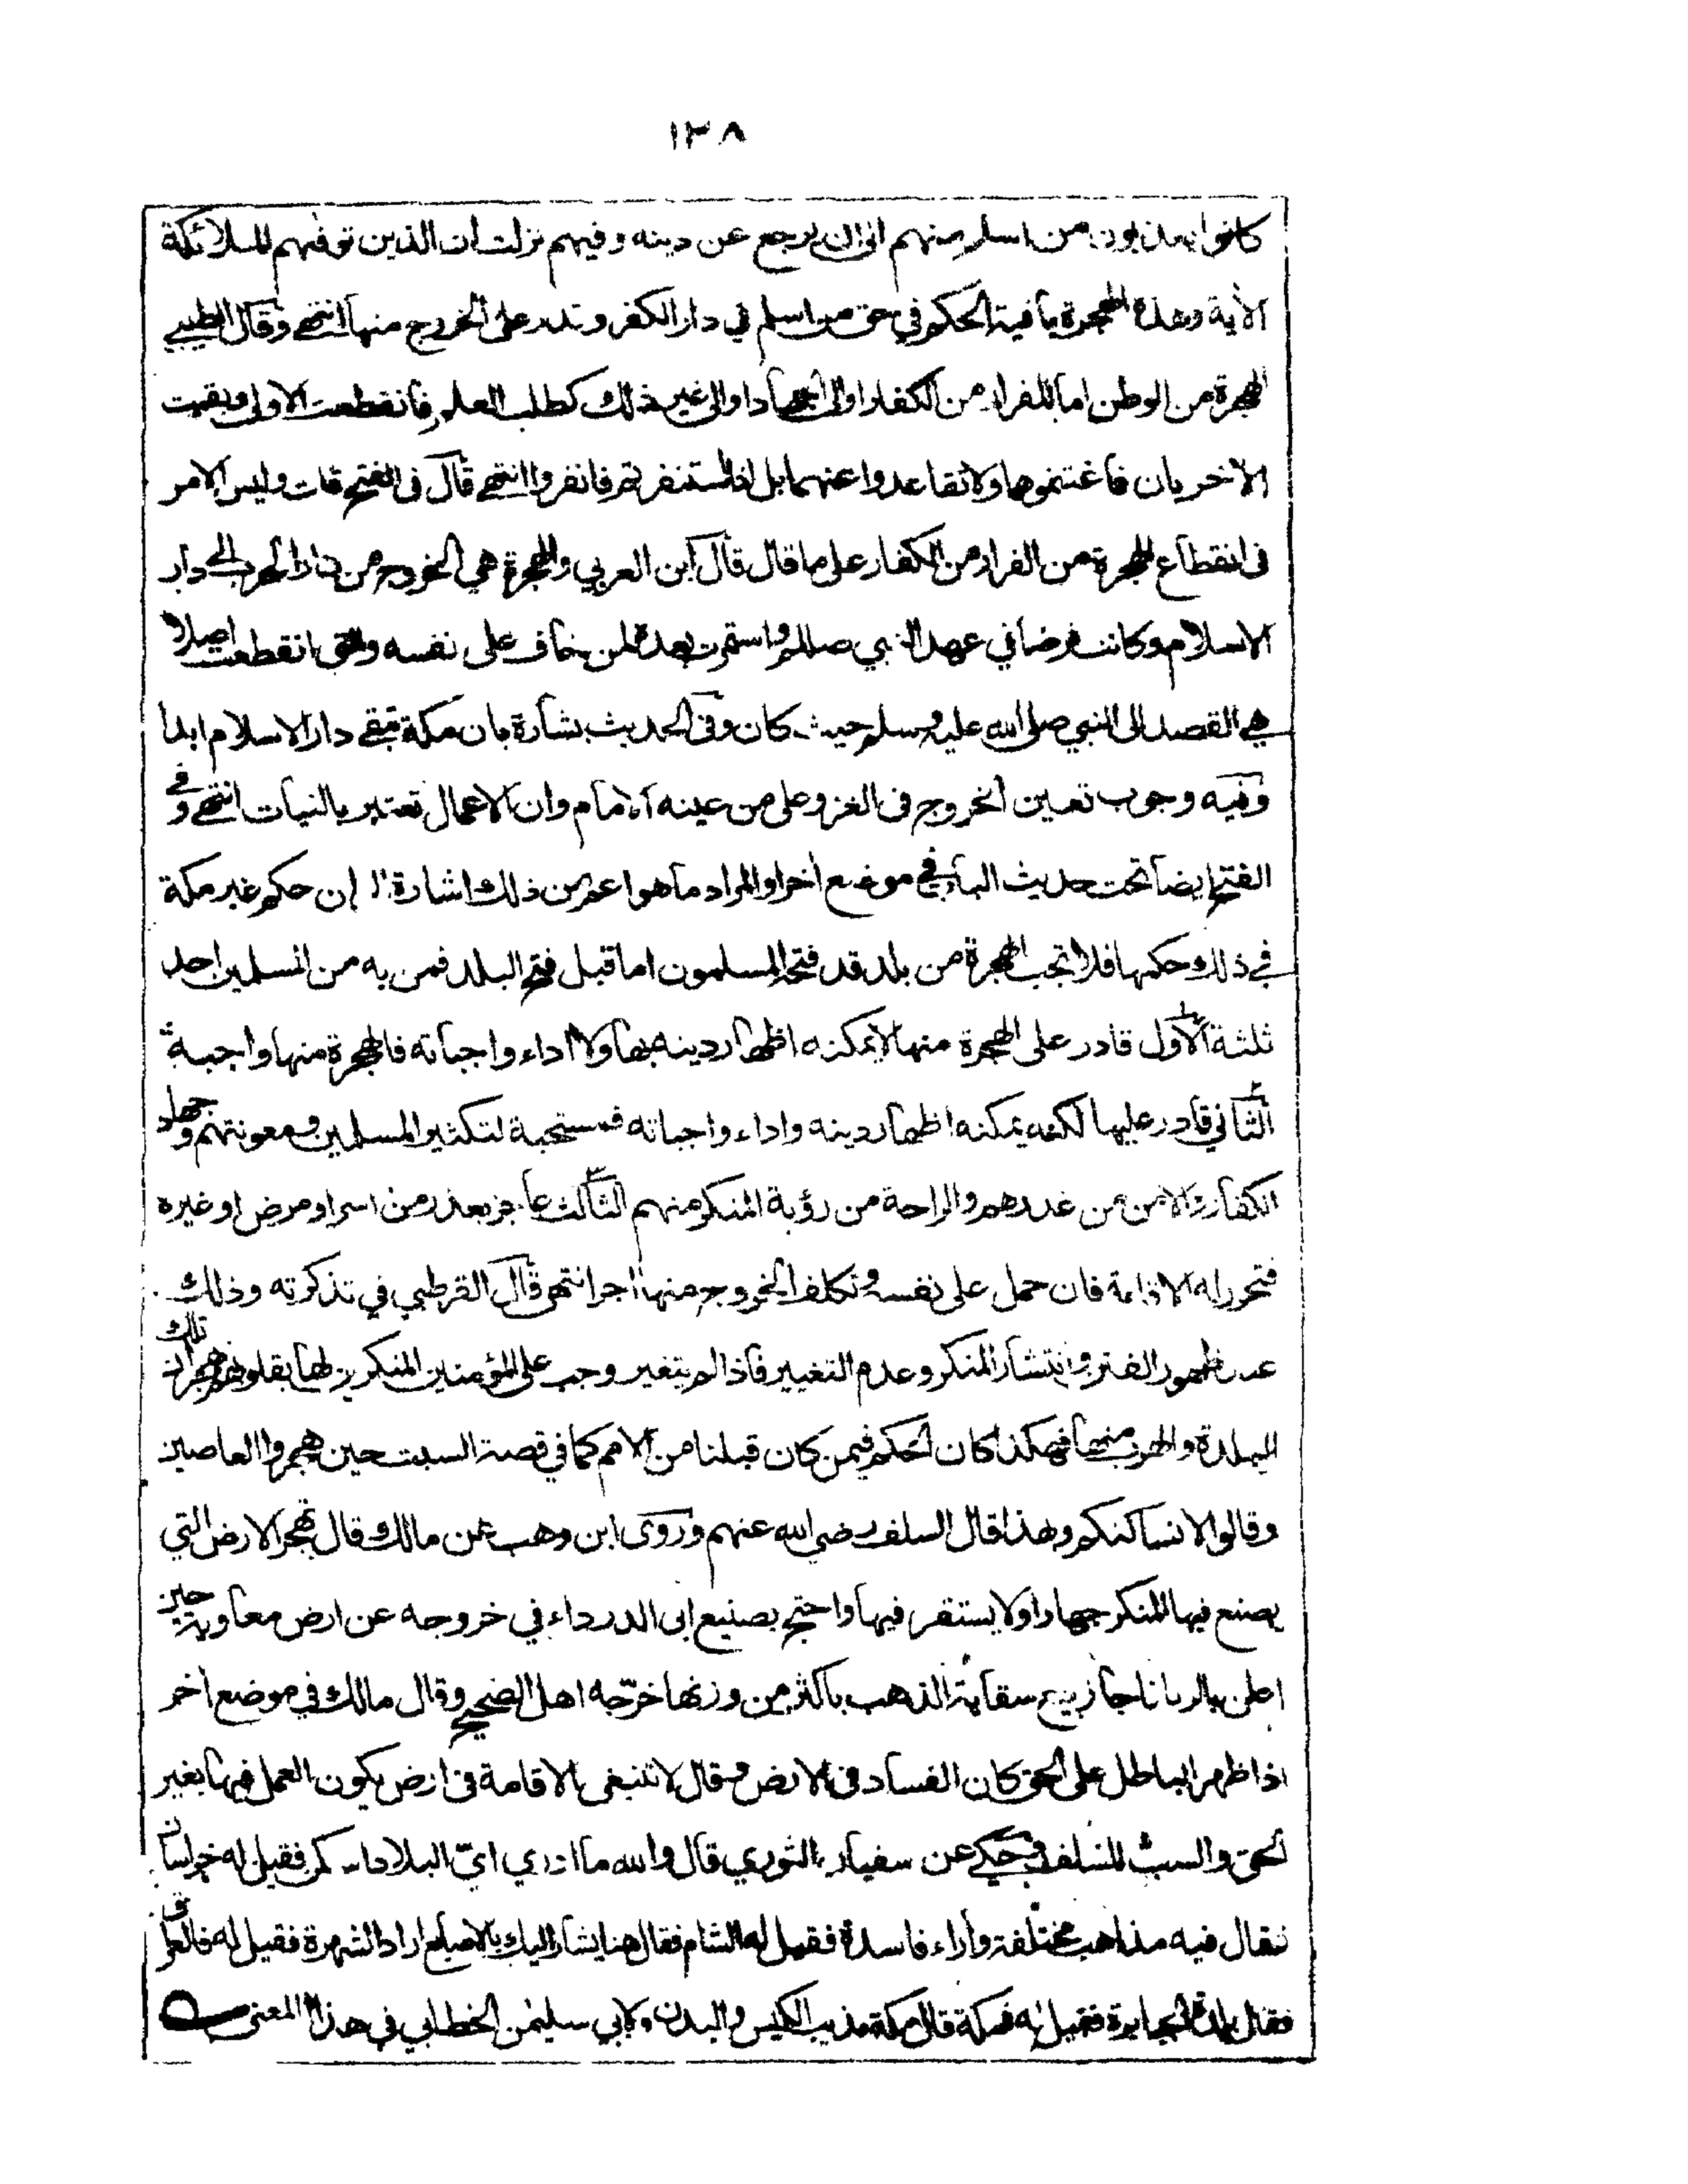 ١٣٨
كانوا يعذبون من اسلم منهم الى ان يرجع عن دينه وفيهم نزلت ان الذين توفهم الملائكة
الأية وهذه الهجرة باقية الحكم في حق من اسلم في دار الكفر وقدر على الخروج منها انتهى وقال الطيبي
الهجرة من الوطن اما للفرار من الكفار او الى الجهاد او الى غير ذلك كطلب العلم فانقطعت الاولى وبقيت
الأخريان فاغتنموها ولا تقاعدوا عنهما بل اذا استنفرتم فانفروا انتهى قال فى الفتح قلت وليس الامر
فى انقطاع الهجرة من الفرار من الكفار على ما قال قال ابن العربي والهجرة هي الخروج من دار الحرب الى دار
الاسلام وكانت فرضا في عهد النبي صللم واستمرت بعده لمن خاف على نفسه والتى انقطعت اصلا
هي القصد الى النبي صلى الله عليه وسلم حيث كان وفى الحديث بشارة بان مكة تبقى دار الاسلام ابدا
وفيه وجوب تعين الخروج فى الغزو على من عينه الامام وان الاعمال تعتبر بالنيات انتهى وفي
الفتح ايضا تحت حديث الباب في موضع أخر او المراد ما هو اعم من ذلك اشارة الى ان حكم غير مكة
في ذلك حكمها فلا تجب الهجرة من بلد قد فتحه المسلمون اما قبل فتح البلد فمن به من المسلمين احد
ثلثة الأول قادر على الهجرة منها لا يمكنه اظهار دينه بها ولا اداء واجباته فالهجرة منها واجبة
الثاني قادر عليها لكنه يمكنه اظهار دينه واداء واجباته فمستحبة لتكثير المسلمين ومعونتهم وجهاد
الكفار والامن من غدرهم والراحة من رؤية المنكر منهم الثالث عاجز بعذر من اسر او مرض او غيره
فتجوز له الاقامة فان حمل على نفسه وتكلف الخروج منها اجر انتهى قال القرطبي في تذكرته وذلك
عند ظهور الفتن وانتشار المنكر وعدم التغيير فاذا لم يتغير وجب على المؤمنين المنكرين لها بقلوبهم هجران تلك
البلدة والهرب منها فهكذا كان الحكم فيمن كان قبلنا من الامم كما في قصة السبت حين هجروا العاصين
وقالوا لا نساكنكم وبهذا قال السلف رضي الله عنهم وروى ابن وهب عن مالك قال تهجر الارض التي
يصنع فيها المنكر جهارا ولا يستقر فيها واحتج بصنيع ابى الدرداء في خروجه عن ارض معاوية حين
اعلن بالربا فاجاز بيع سقاية الذهب باكثر من وزنها خرّجه اهل الصحيح وقال مالك في موضع أخر
اذا ظهر الباطل على الحق كان الفساد فى الارض وقال لا تنبغى الاقامة فى ارض يكون العمل فيها بغير
الحق والسب للسلف وحكي عن سفيان الثوري قال والله ما ادري ايّ البلاد اسكن فقيل له خراسان
فقال فيه مذاهب مختلفة وأراء فاسدة فقيل له الشام فقال هنا يشار اليك بالاصابع اراد الشهرة فقيل له فالعراق
فقال بلدة الجبابرة فقيل له فمكة قال مكة مذيب الكيس والبدن ولابي سليمن الخطابي في هذا المعنى